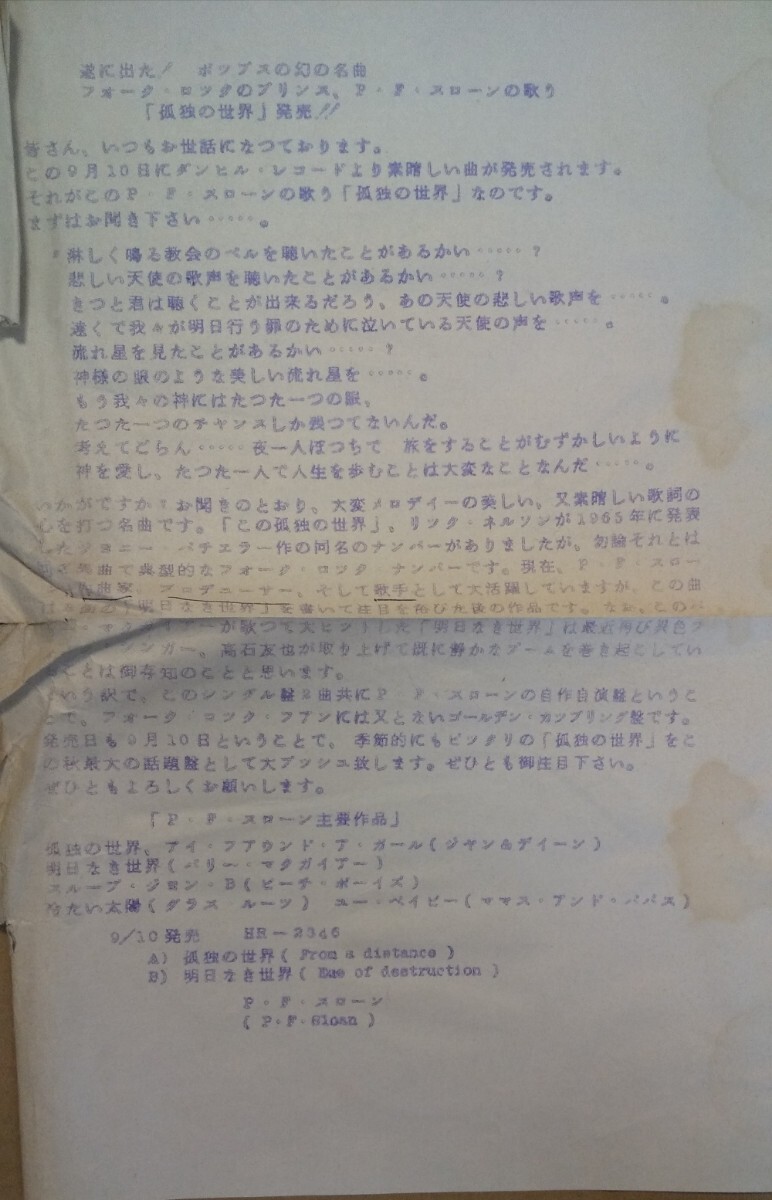 遂に出た！ ポップスの幻の名曲
フオーク・ロックのプリンス、P・F・スローンの歌う
「孤独の世界」発売!!
皆さん、いつもお世話になつております。
この9月10日にダンヒル・レコードより素晴しい曲が発売されます。
それがこのP・F・スローンの歌う「孤独の世界」なのです。
まずはお聞き下さい‥‥‥。
淋しく鳴る教会のベルを聴いたことがあるかい‥‥‥?
悲しい天使の歌声を聴いたことがあるかい‥‥‥?
きつと君は聴くことが出来るだろう、あの天使の悲しい歌声を‥‥‥。
遠くで我々が明日行う罪のために泣いている天使の声を‥‥‥。
流れ星を見たことがあるかい‥‥‥?
神様の眼のような美しい流れ星を‥‥‥。
もう我々の神にはたつた一つの眼、
たつた一つのチャンスしか残つてないんだ。
考えてごらん‥‥‥夜一人ぼつちで 旅をすることがむずかしいように
神を愛し、たつた一人で人生を歩むことは大変なことなんだ‥‥‥。
いかがですか?お聞きのとおり、大変メロデイーの美しい、又素晴しい歌詞の
心を打つ名曲です。「この孤独の世界」。リツク・ネルソンが1965年に発表
したジョニー・バチェラー作の同名のナンバーがありましたが、勿論それとは
曲で典型的なフオーク・ロック・ナンバーです。現在、P・F・スロー
作曲家、プロデューサー、そして歌手として大活躍していますが、この曲
「明日なき世界」を書いて注目を浴びた後の作品です。なお、この
マクガイアーが歌つて大ヒットした「明日なき世界」は最近再び異色フ
シンガー、高石友也が取り上げて既に静かなブームを巻き起こしてい
ことは御存知のことと思います。
という訳で、このシングル盤2曲共にP・F・スローンの自作自演盤というこ
とで、フオーク・ロック・フアンには又とないゴールデン・カップリング盤です。
発売日も9月10日ということで、季節的にもピッタリの「孤独の世界」をこ
の秋最大の話題盤として大プッシュ致します。ぜひとも御注目下さい。
ぜひともよろしくお願いします。
「P・F・スローン主要作品」
孤独の世界、アイ・フアウンド・ア・ガール(ジヤン&デイーン)
明日なき世界(バリー・マクガイアー)
スループ・ジョン・B(ビーチ・ボーイズ)
冷たい太陽(グラス ルーツ) ユー・ベイビー(ママス・アンド・パパス)
9/10発売 HR-2346
A) 孤独の世界( From a distance )
B) 明日なき世界( Eue of destruction )
P・F・スローン
( P.F.Sloan )